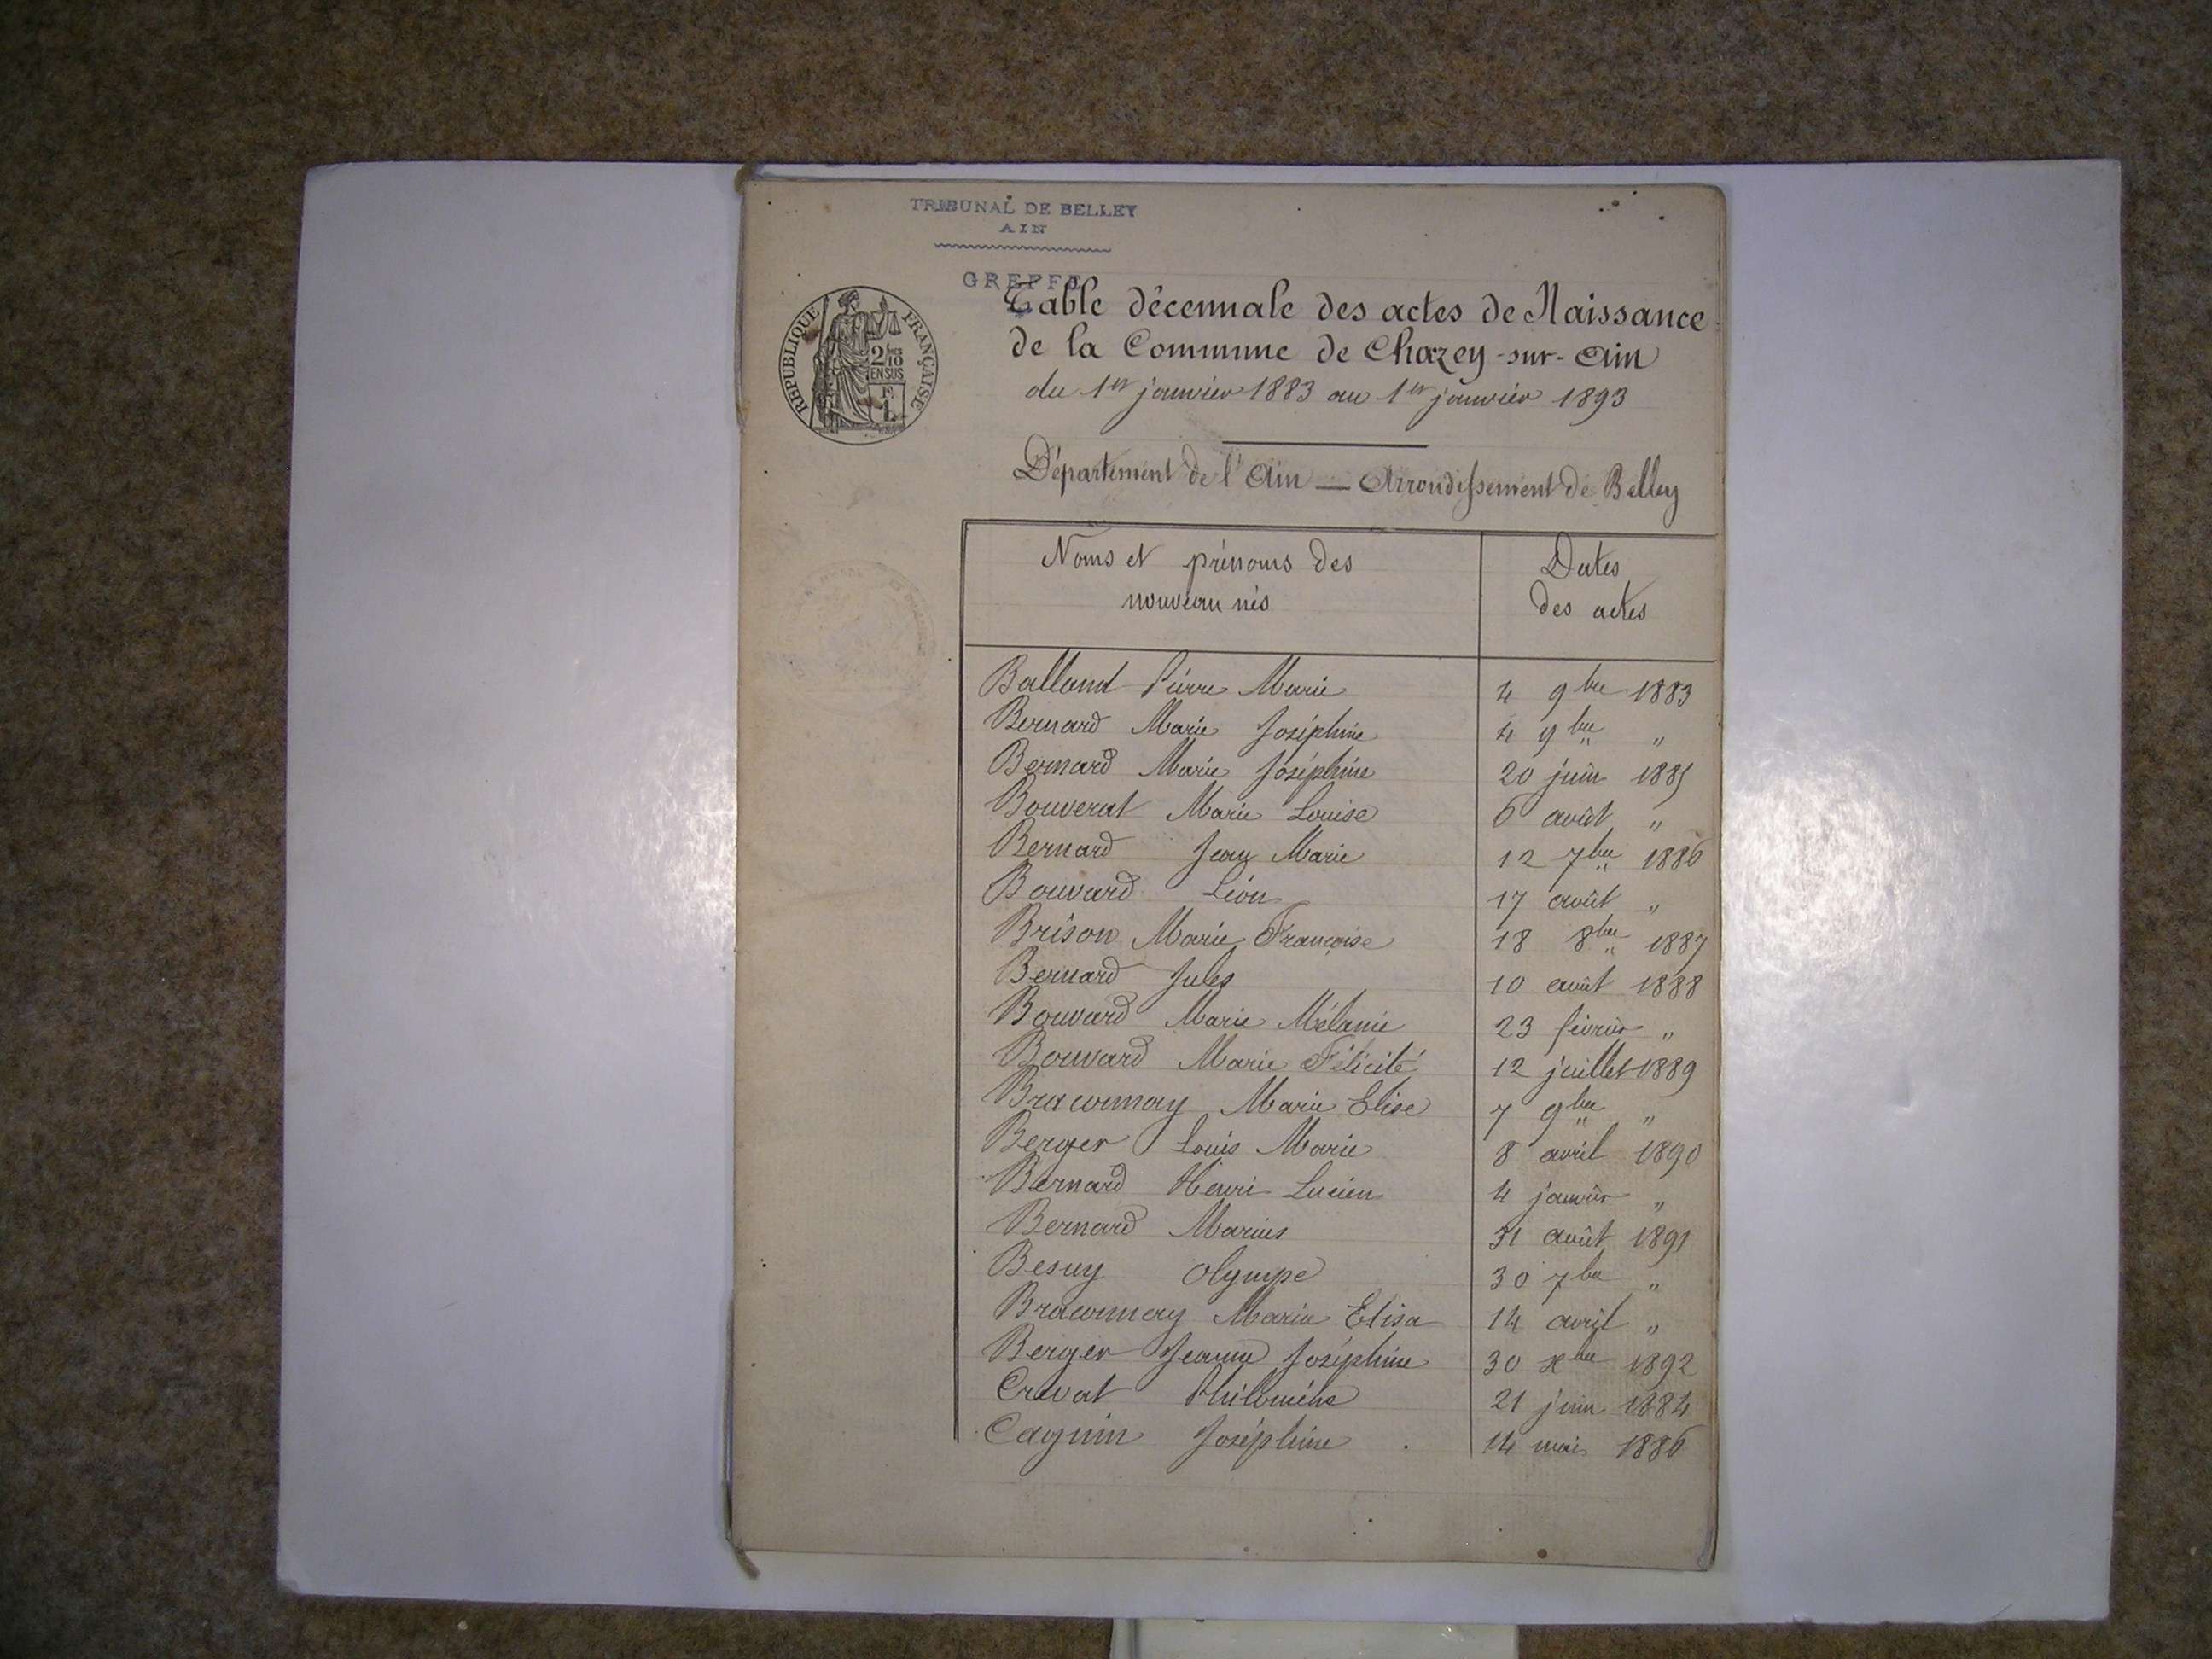 TRIBUNAL DE BELLEY
AIN
GREFFE
RÉPUBLIQUE FRANÇAISE
2/10
EN SUS
Table décennale des actes de Naissance
de la Commune de Chazey-sur-Ain
du 1er janvier 1883 au 1er janvier 1893
Département de l'Ain — Arrondissement de Belley
Noms et prénoms des nouveau nés | Dates des actes
Balland Pierre Marie 4 9bre 1883
Bernard Marie Joséphine 4 9bre "
Bernard Marie Joséphine 20 juin 1885
Bouverat Marie Louise 6 août "
Bernard Jean Marie 12 7bre 1886
Bouvard Léon 17 août "
Brison Marie Françoise 18 8bre 1887
Bernard Jules 10 août 1888
Bouvard Marie Mélanie 23 février "
Bouvard Marie Félicité 12 juillet 1889
Bracounay Marie Elise 7 9bre "
Berger Louis Marie 8 avril 1890
Bernard Henri Lucien 4 janvier "
Bernard Marius 31 août 1891
Besuy Olympe 30 7bre "
Bracounay Marie Elisa 14 avril "
Berger Jeanne Joséphine 30 xbre 1892
Cruvat Philomène 21 juin 1884
Caguin Joséphine 14 mai 1886